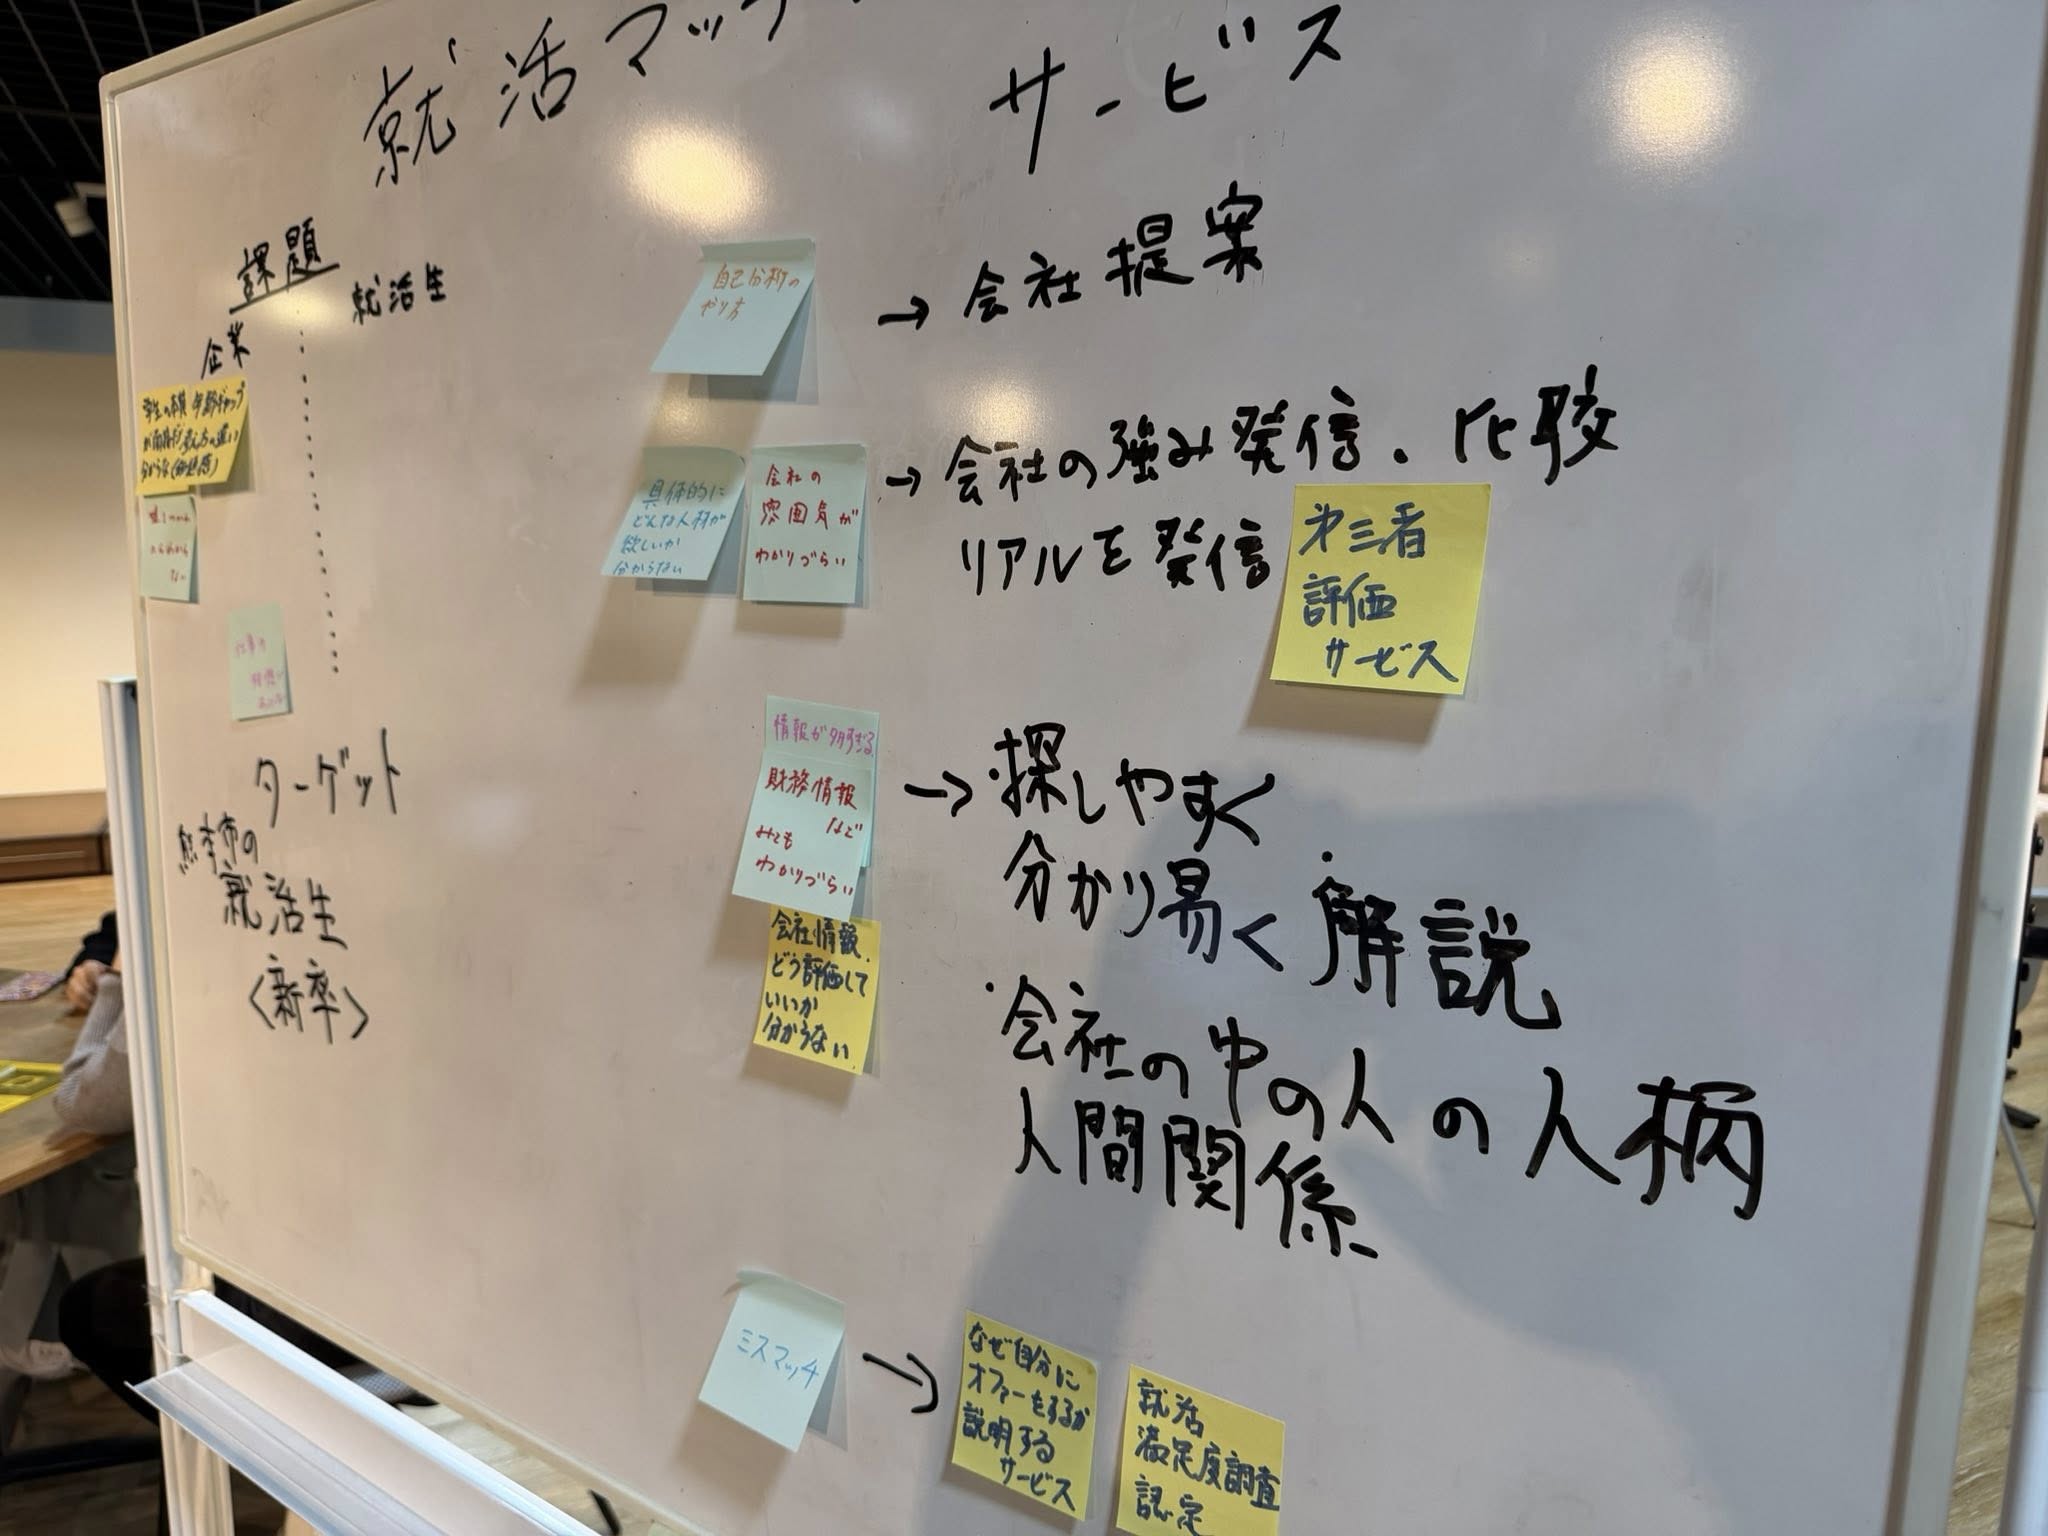 就活マッチ
サービス
課題
就活生
企業
年齢ギャップ
考え方の違い
ターゲット
熊本市の
就活生
〈新卒〉
自己分析の
やり方
→ 会社提案
具体的に
どんな人材が
欲しいか
分からない
会社の
雰囲気が
わかりづらい
→ 会社の強み発信、比較
リアルを発信
才三者
評価
サービス
情報が多すぎる
財務情報
など
みても
わかりづらい
会社情報
どう評価して
いいか
分からない
→ ・探しやすく
分かり易く・解説
・会社の中の人の人柄
人間関係
ミスマッチ
→
なぜ自分に
オファーをするか
説明する
サービス
就活
満足度調査
認定